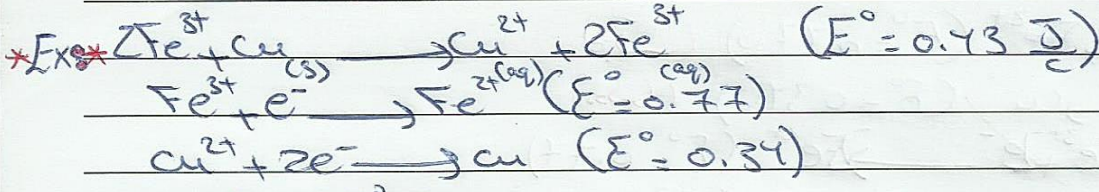 *Exs* 2Fe³⁺ + Cu(s) → Cu²⁺(aq) + 2Fe³⁺(aq) (E° = 0.43 J/C)
Fe³⁺ + e⁻ → Fe²⁺ (E° = 0.77)
Cu²⁺ + 2e⁻ → Cu (E° = 0.34)